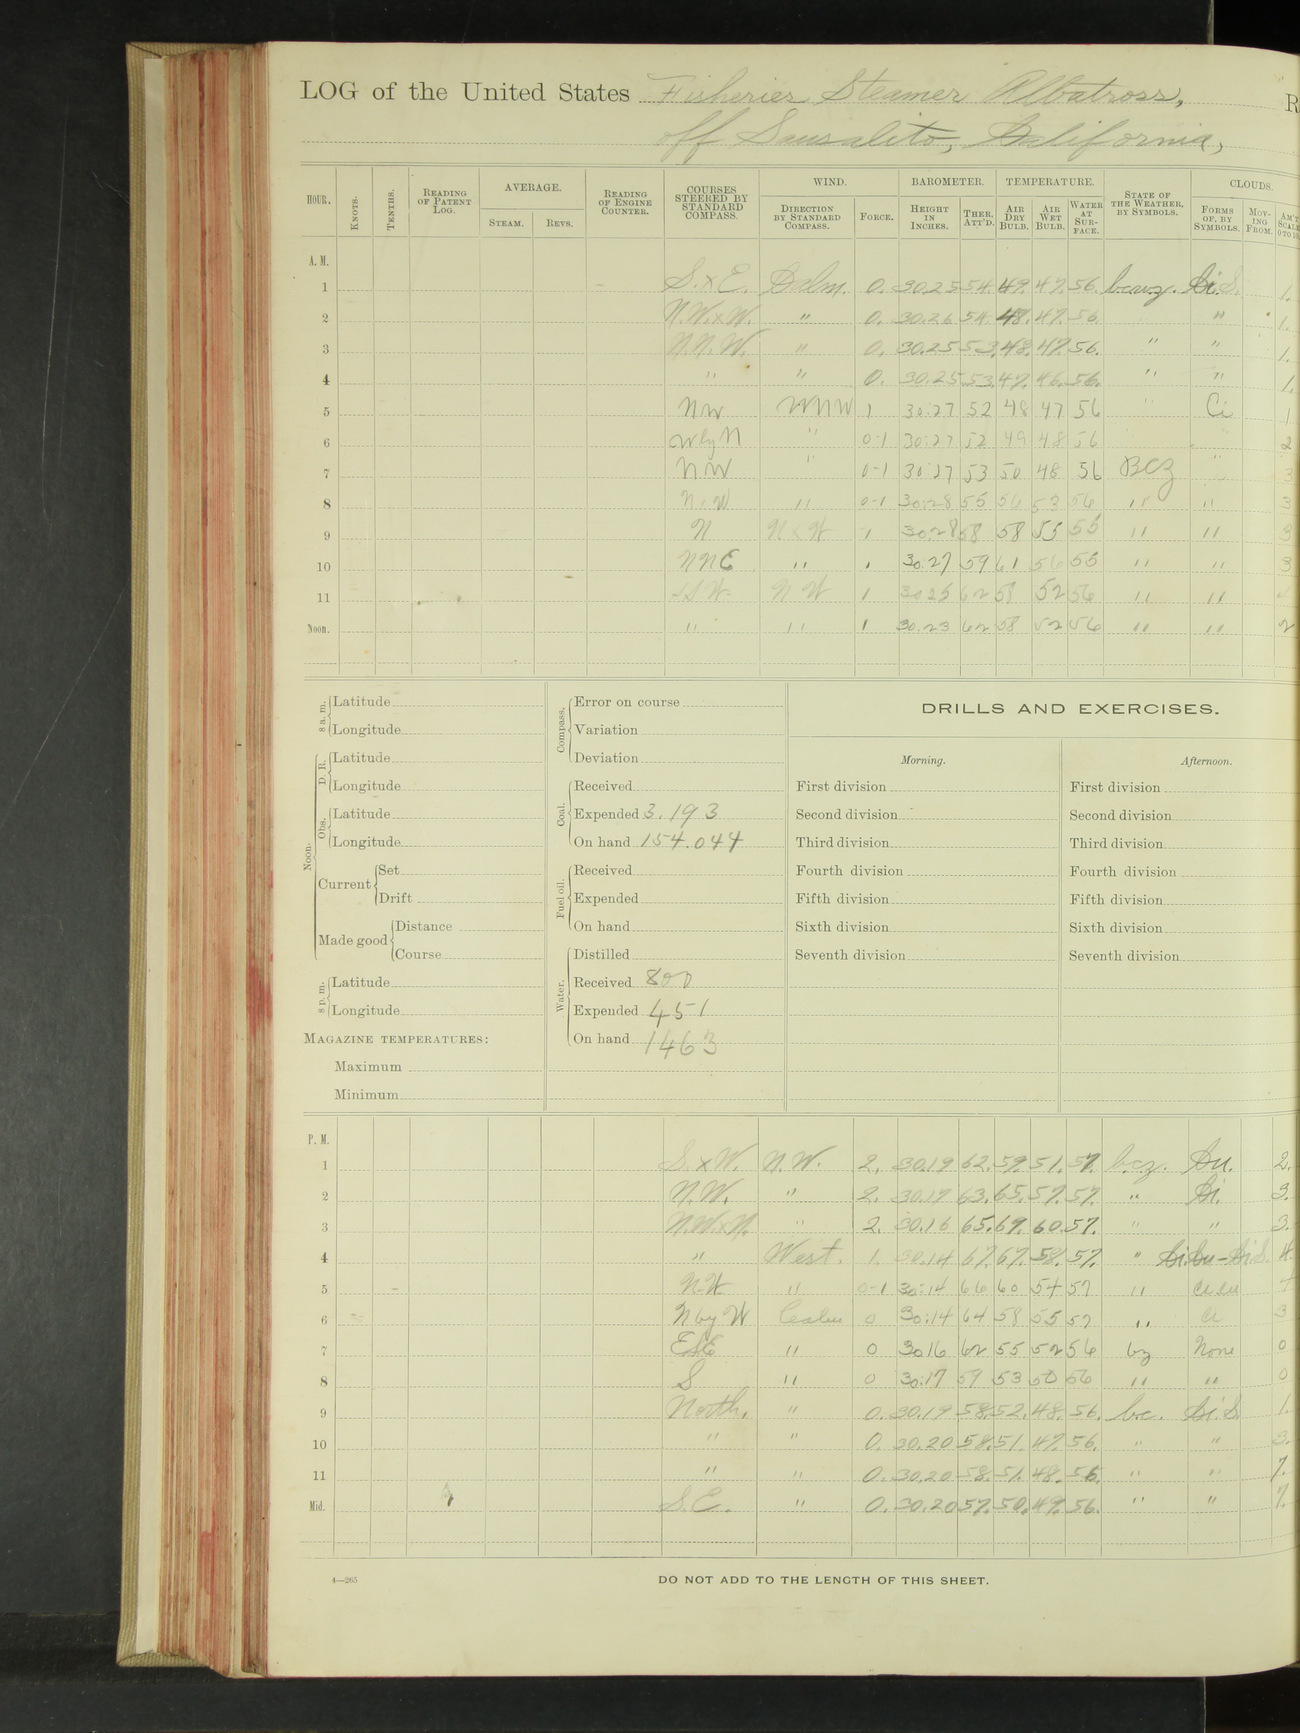 LOG of the United States Fisheries Steamer Albatross, R
off Sausalito, California,
HOUR. KNOTS. TENTHS. READING OF PATENT LOG. AVERAGE. STEAM. REVS. READING OF ENGINE COUNTER. COURSES STEERED BY STANDARD COMPASS. WIND. DIRECTION BY STANDARD COMPASS. FORCE. BAROMETER. HEIGHT IN INCHES. THER. ATT'D. TEMPERATURE. AIR DRY BULB. AIR WET BULB. WATER AT SURFACE. STATE OF THE WEATHER, BY SYMBOLS. CLOUDS. FORMS OF, BY SYMBOLS. MOVING FROM. AM'T SCALE 0 TO 10
A. M.
1 S.xE. Calm. 0. 30.25 54. 49. 47. 56. Ci.S. 1.
2 N.W.xW. " 0. 30.26 54. 48. 47. 56. " 1.
3 N.N.W. " 0. 30.25 53. 48. 47. 56. " " 1.
4 " " 0. 30.25 53. 47. 46. 56. " " 1.
5 NW WNW 1 30.27 52 48 47 56 " Ci 1
6 WbyN " 0-1 30.27 52 49 48 56 2
7 NW " 0-1 30.27 53 50 48 56 BCZ " 3
8 " 0-1 30.28 55 56 53 56 " " 3
9 N NxW 1 30.28 58 58 55 55 " " 3
10 NNE " 1 30.27 59 61 56 55 " " 3
11 NW 1 30.25 62 58 52 56 " "
Noon. " " 1 30.23 62 58 52 56 " " 2
8 a. m. Latitude
Longitude
Noon. D. R. Latitude
Longitude
Obs. Latitude
Longitude
Current Set
Drift
Made good Distance
Course
8 p. m. Latitude
Longitude
MAGAZINE TEMPERATURES:
Maximum
Minimum
Compass. Error on course
Variation
Deviation
Coal. Received
Expended 3.193
On hand 154.044
Fuel oil. Received
Expended
On hand
Water. Distilled
Received 800
Expended 451
On hand 1463
DRILLS AND EXERCISES.
Morning. Afternoon.
First division First division
Second division Second division
Third division Third division
Fourth division Fourth division
Fifth division Fifth division
Sixth division Sixth division
Seventh division Seventh division
P. M.
1 S.xW. N.W. 2. 30.19 62. 59. 51. 57. bcz. Cu. 2.
2 N.W. " 2. 30.17 63. 65. 57. 57. " Ci. 3.
3 N.W.xN. " 2. 30.16 65. 67. 60. 57. " " 3.
4 " West. 1. 30.14 67. 67. 58. 57. " Ci.Cu-Ci.S. 4.
5 NW " 0-1 30.14 66 60 54 57 " Ci Cu
6 N by W Calm 0 30.14 64 58 55 57 " Ci 3
7 ESE " 0 30.16 62 55 52 56 bz None 0
8 S " 0 30.17 59 53 50 56 " " 0
9 North. " 0. 30.19 58. 52. 48. 56. bc. Ci.S. 1.
10 " " 0. 30.20 58. 51. 47. 56. " " 3.
11 " " 0. 30.20 58. 51. 48. 56. " " 7.
Mid. S.E. " 0. 30.20 57. 50. 49. 56. " " 7.
4—265
DO NOT ADD TO THE LENGTH OF THIS SHEET.